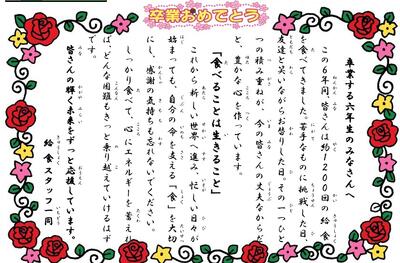 卒業おめでとう
卒業する六年生のみなさんへ
この6年間、皆さんは約1200回の給食
を食べてきました。苦手なものに挑戦した日、
友達と笑いながらお替りした日。その一つひと
つの積みすねが、今の皆さんの丈夫なからだ
と、豊かな心を作っています。
「食べることは生きること」
これから新しい世界へ進み、忙しい日々が
始まっても、自分の命を支える「食」を大切
にし、感謝の気持ちも忘れないでください。
しっかり食べて、心にエネルギーを蓄えれ
ば、どんな困難もきっと乗り越えていけるはず
です。
皆さんの輝く未来をずっと応援しています。
給食スタッフ一同